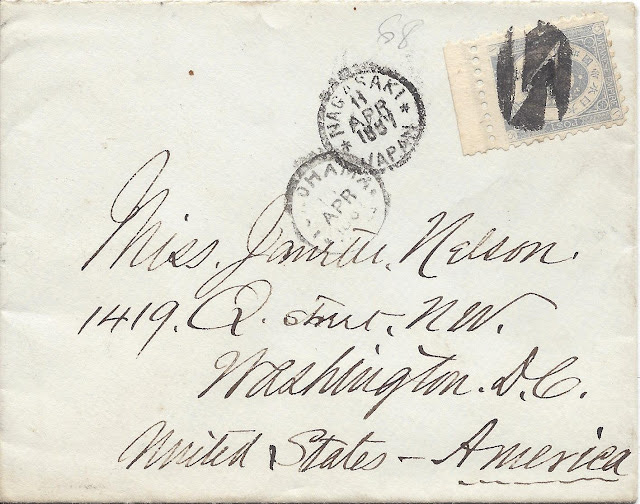 68
NAGASAKI
11
APR
1887
JAPAN
OHAMA
APR
Miss. Nelson.
1419. Q. Street, N.W.
Washington. D.C.
United States - America